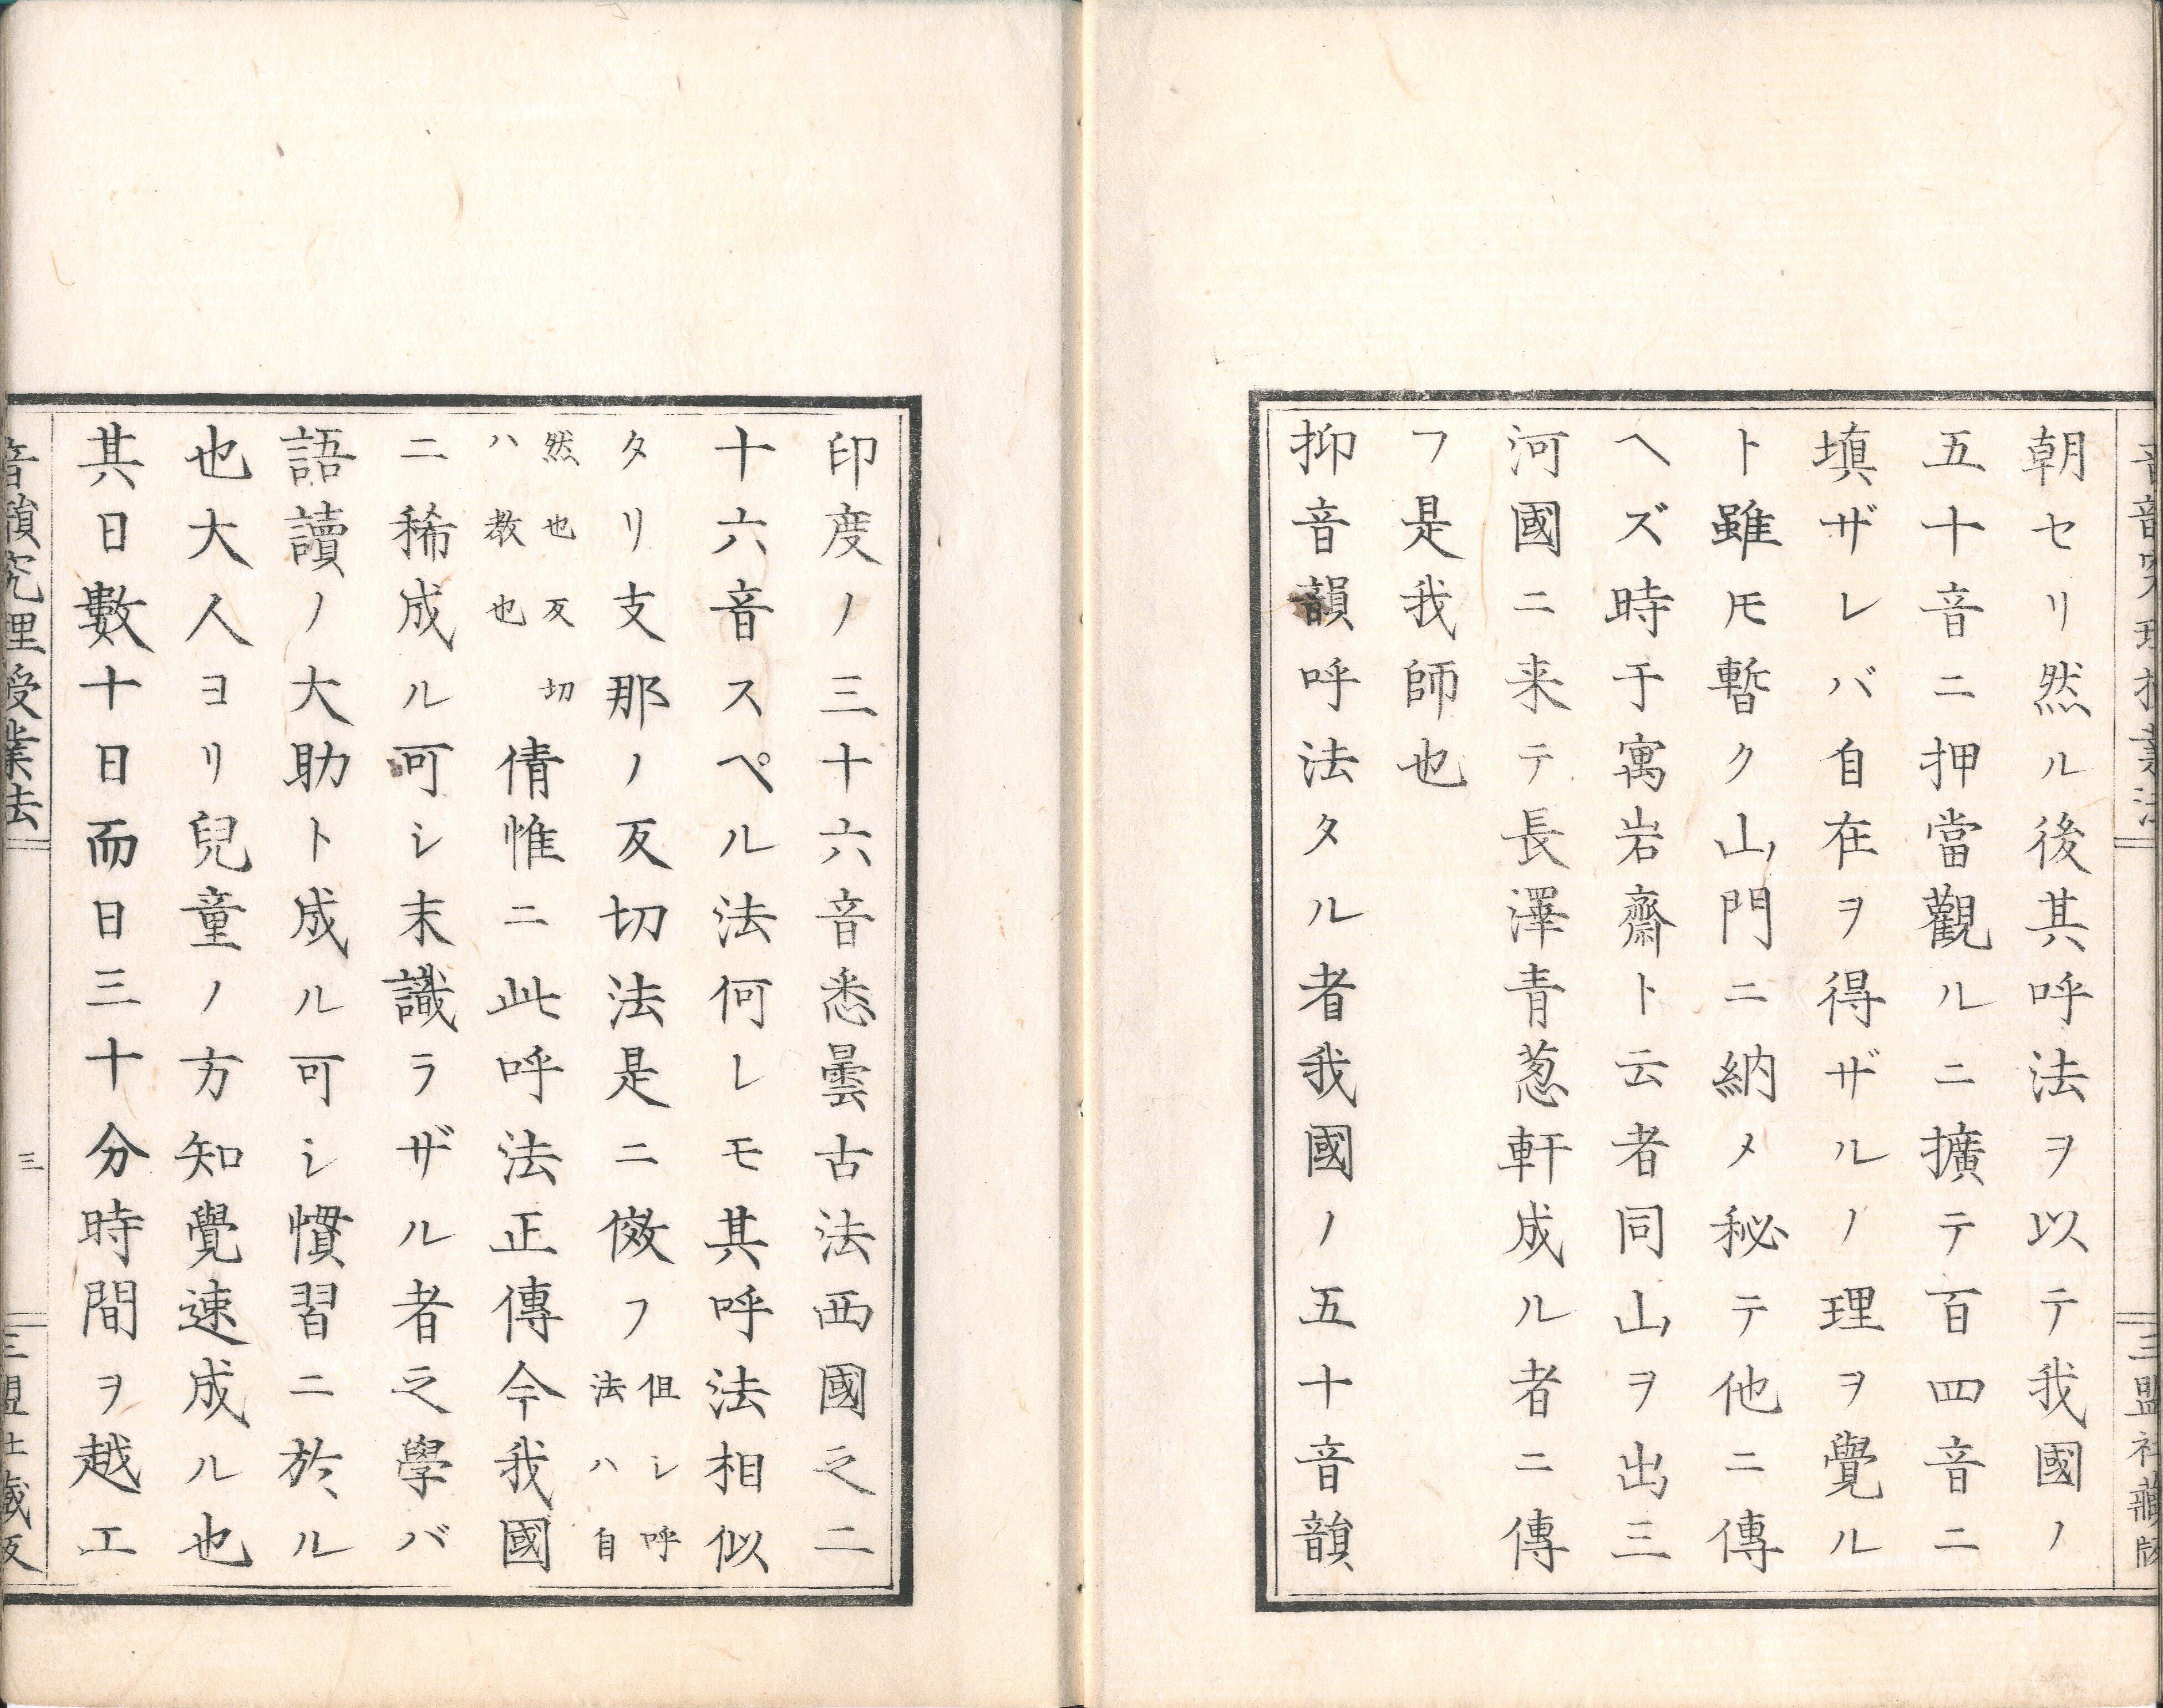 音韻究理授業法
三盟社藏版
朝セリ然ル後其呼法ヲ以テ我國ノ
五十音ニ押當觀ルニ擴テ百四音ニ
填ザレバ自在ヲ得ザルノ理ヲ覺ル
ト雖モ暫ク山門ニ納メ秘テ他ニ傳
ヘズ時于寓岩齋ト云者同山ヲ出三
河國ニ来テ長澤青葱軒成ル者ニ傳
フ是我師也
抑音韻呼法タル者我國ノ五十音韻
印度ノ三十六音悉曇古法西國之二
十六音スペル法何レモ其呼法相似
タリ支那ノ反切法是ニ傚フ
但シ呼
法ハ自
然也反切
ハ教也
倩惟ニ此呼法正傳今我國
ニ稀成ル可シ末識ラザル者之學バ
語讀ノ大助ト成ル可シ慣習ニ於ル
也大人ヨリ兒童ノ方知覺速成ル也
其日數十日而日三十分時間ヲ越エ
音韻究理授業法
三
三盟社藏版